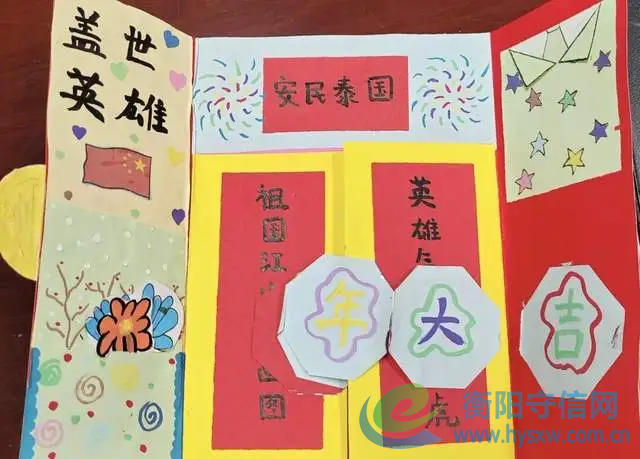 盖世
英雄
安民泰国
祖国江
图
英雄
虎
年
大
吉
衡阳守信网
www.hysxw.com.cn